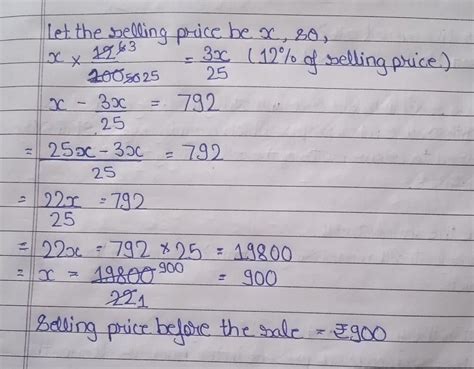 Let the selling price be x, so,
x × 12 6 3 / 100 50 25 = 3x/25 (12% of selling price)
x - 3x/25 = 792
= 25x - 3x / 25 = 792
= 22x/25 = 792
= 22x = 792 × 25 = 19800
= x = 19800 900 / 22 1 = 900
Selling price before the sale = ₹900